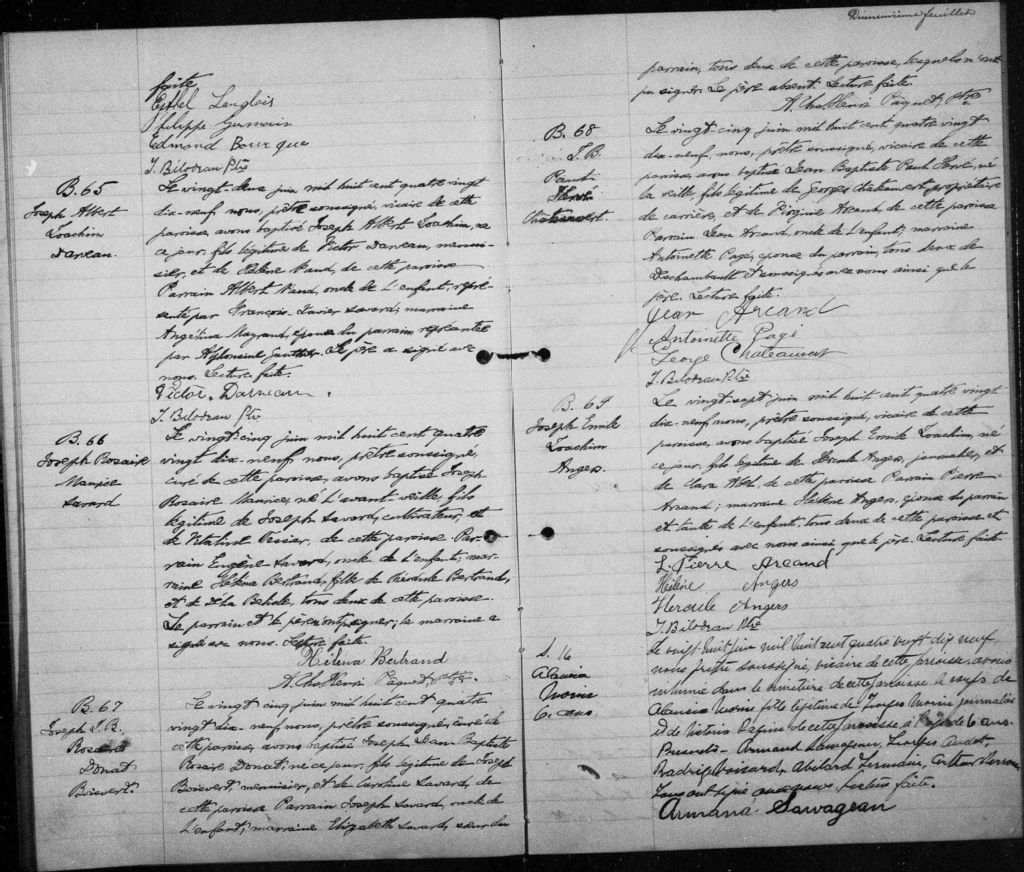 faite
Eyffel Langlois
Philippe Germain
Edmond Bourque
J. Bilodeau Ptre
B. 65
Joseph Albert
Joachim
Darveau.
Le vingt-deux juin mil huit cent quatre vingt
dix-neuf nous, prêtre soussigné, vicaire de cette
paroisse avons baptisé Joseph Albert Joachim, né
ce jour, fils légitime de Victor Darveau, menui-
sier, et de Hélène Naud, de cette paroisse
Parrain Albert Naud, oncle de l'enfant, repré-
senté par François-Xavier Savard; marraine
Angélina Mayrand, épouse du parrain, représentée
par Alphonsine Gauthier. Le père a signé avec
nous. Lecture faite.
Victor Darveau.
J. Bilodeau Ptre
B. 66
Joseph Rosaire
Maurice
Savard
Le vingt-cinq juin mil huit cent quatre
vingt dix-neuf nous, prêtre soussigné,
curé de cette paroisse, avons baptisé Joseph
Rosaire Maurice, né l'avant-veille, fils
légitime de Joseph Savard, cultivateur, et
de Tessier, de cette paroisse Par-
rain Eugène Savard, oncle de l'enfant; mar-
raine Héléna Bertrand, fille de Théodule Bertrand,
et de Belisle, tous deux de cette paroisse.
Le parrain et le père n'ont signer; la marraine a
signé avec nous. Lecture faite.
Hiléna Bertrand
A. Chs. Henri Paquet Ptre.
B. 67
Joseph J. B.
Rosaire
Donat
Boisvert.
Le vingt cinq juin mil huit cent quatre
vingt dix-neuf nous, prêtre soussigné, curé de
cette paroisse, avons baptisé Joseph Jean-Baptiste
Rosaire Donat; né ce jour, fils légitime de Joseph
Boisvert, menuisier, et de Caroline Savard, de
cette paroisse Parrain Joseph Savard, oncle de
l'enfant; marraine Elizabeth Savard, sœur du
Dixneuvième feuillet
parrain, tous deux de cette paroisse, lesquels n'ont
pu signer. Le père absent. Lecture faite.
A. Chs. Henri Paquet, Ptre
B. 68
J. B.
Paul
Hervé
Chateauvert
Le vingt-cinq juin mil huit cent quatre vingt
dix-neuf, nous, prêtre soussigné, vicaire de cette
paroisse, avons baptisé Jean Baptiste Paul Hervé, né
la veille, fils légitime de Georges Chateauvert, propriétaire
de carrière, et de Virginie Arcand, de cette paroisse
Parrain Jean Arcand, oncle de l'enfant; marraine
Antoinette Pagé, épouse du parrain, tous deux de
Deschambault et soussignés avec nous ainsi que le
père. Lecture faite.
Jean Arcand
Antoinette Pagé
George Chateauvert
J. Bilodeau Ptre
B. 69
Joseph Emile
Joachim
Angers.
Le vingt-sept juin mil huit cent quatre vingt
dix-neuf nous, prêtre soussigné, vicaire de cette
paroisse, avons baptisé Joseph Emile Joachim, né
ce jour, fils légitime de Hercule Angers, journalier, et
de Clara, de cette paroisse Parrain Pierre
Arcand; marraine Hélène Angers, épouse du parrain
et tante de l'enfant, tous deux de cette paroisse et
soussignés avec nous ainsi que le père. Lecture faite.
L. Pierre Arcand
Hélène Angers
Hercule Angers
J. Bilodeau Ptre
S. 16
Morin
6. ans.
Le vingt huit juin mil huit cent quatre vingt dix neuf
nous prêtre soussigné, vicaire de cette paroisse avons
inhumé dans le cimetière de cette paroisse le corps de
Morin fille légitime de Georges Morin journalier
et de de cette paroisse à l'age de 6 ans.
Présents - Armand Sauvageau, Georges Audet,
Boisard, Abélard Germain, Arthur
avec nous, lecture faite.
Armand Sauvageau